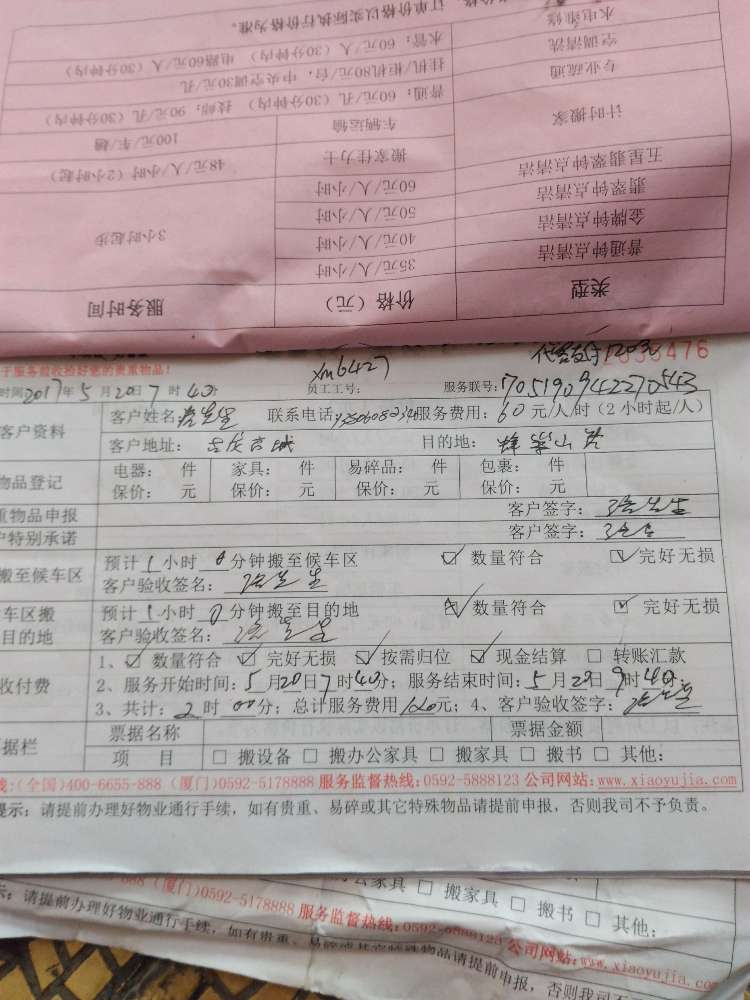 订单价格以实际执行价格为准。
水电维修
水管：60元/人（30分钟内） 电路60元/人（30分钟内）
空调清洗
挂机/柜机80元/台；中央空调30元/孔
专业疏通
普通：60元/孔（30分钟内） 技能：90元/孔（30分钟内）
计时搬家
车辆运输
100元/车/趟
搬家佳力士
48元/人/小时（2小时起）
五星翡翠钟点清洁
60元/人/小时
翡翠钟点清洁
50元/人/小时
金牌钟点清洁
40元/人/小时
普通钟点清洁
35元/人/小时
3小时起步
类型
价格（元）
服务时间
于服务前收捡好您的贵重物品！
时间2017年5月20日7时40分 员工工号：xm6427 服务联号：
客户资料
客户姓名 联系电话 服务费用：60元/人/时（2小时起/人）
客户地址： 目的地：
物品登记
电器： 件 家具： 件 易碎品： 件 包裹： 件
保价： 元 保价： 元 保价： 元 保价： 元
重物品申报 客户签字：
户特别承诺 客户签字：
搬至候车区
预计1小时0分钟搬至候车区 ☑ 数量符合 ☑ 完好无损
客户验收签名：
车区搬
目的地
预计1小时0分钟搬至目的地 ☑ 数量符合 ☑ 完好无损
客户验收签名：
收付费
1、☑ 数量符合 ☑ 完好无损 ☑ 按需归位 ☑ 现金结算 □ 转账汇款
2、服务开始时间：5月20日7时40分；服务结束时间：5月20日9时40分；
3、共计：2时00分；总计服务费用 元；4、客户验收签字：
据栏
票据名称 票据金额
项 目 □ 搬设备 □ 搬办公家具 □ 搬家具 □ 搬书 □ 其他：
线：(全国)400-6655-888 (厦门)0592-5178888 服务监督热线：0592-5888123 公司网站：www.xiaoyujia.com
提示：请提前办理好物业通行手续，如有贵重、易碎或其它特殊物品请提前申报，否则我司不予负责。
公家具 □ 搬家具 □ 搬书 □ 其他：
888 (厦门)0592-5178888 服务监督热线：0592-5888123 公司网站：www.xiaoyujia.com
示：请提前办理好物业通行手续，如有贵重、易碎或其它特殊物品请提前申报，否则我司